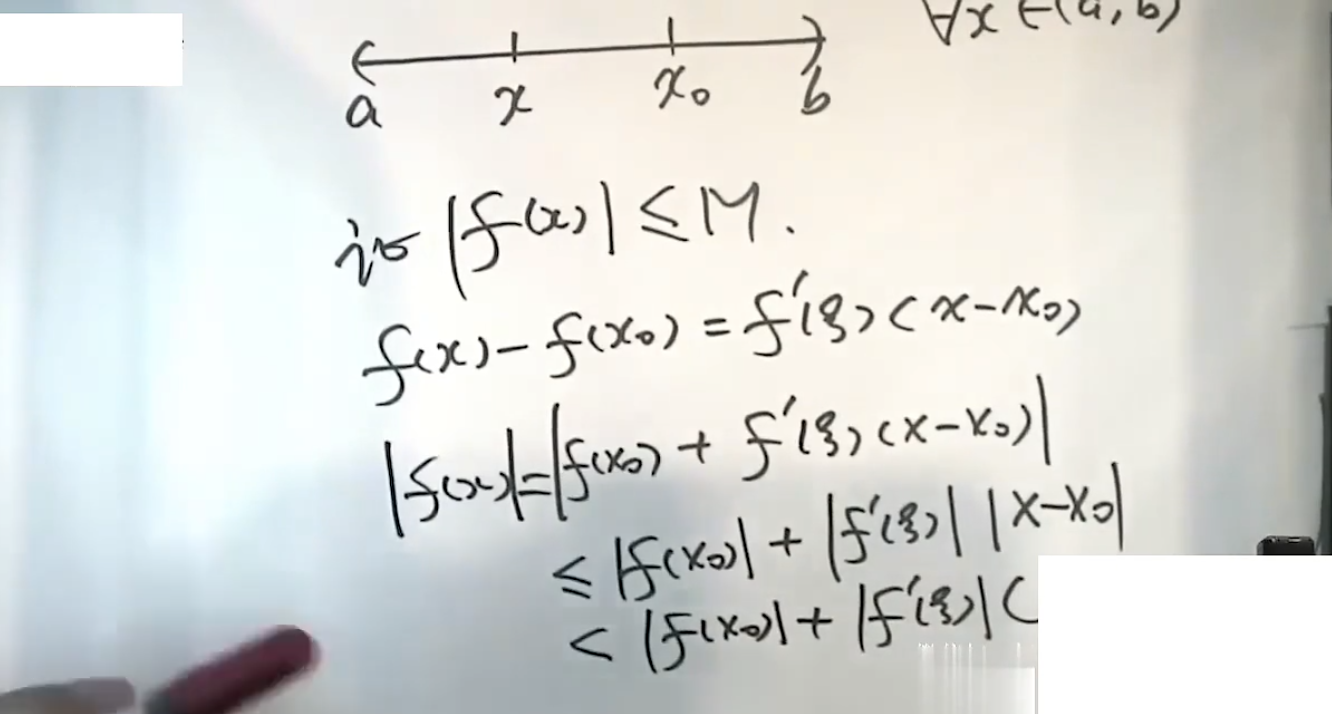 ∀x∈(a,b)
a x x₀ b
证 |f(x)| ≤ M.
f(x)-f(x₀)=f'(ξ)(x-x₀)
|f(x)|=|f(x₀)+f'(ξ)(x-x₀)|
≤|f(x₀)|+|f'(ξ)||x-x₀|
<|f(x₀)|+|f'(ξ)|(